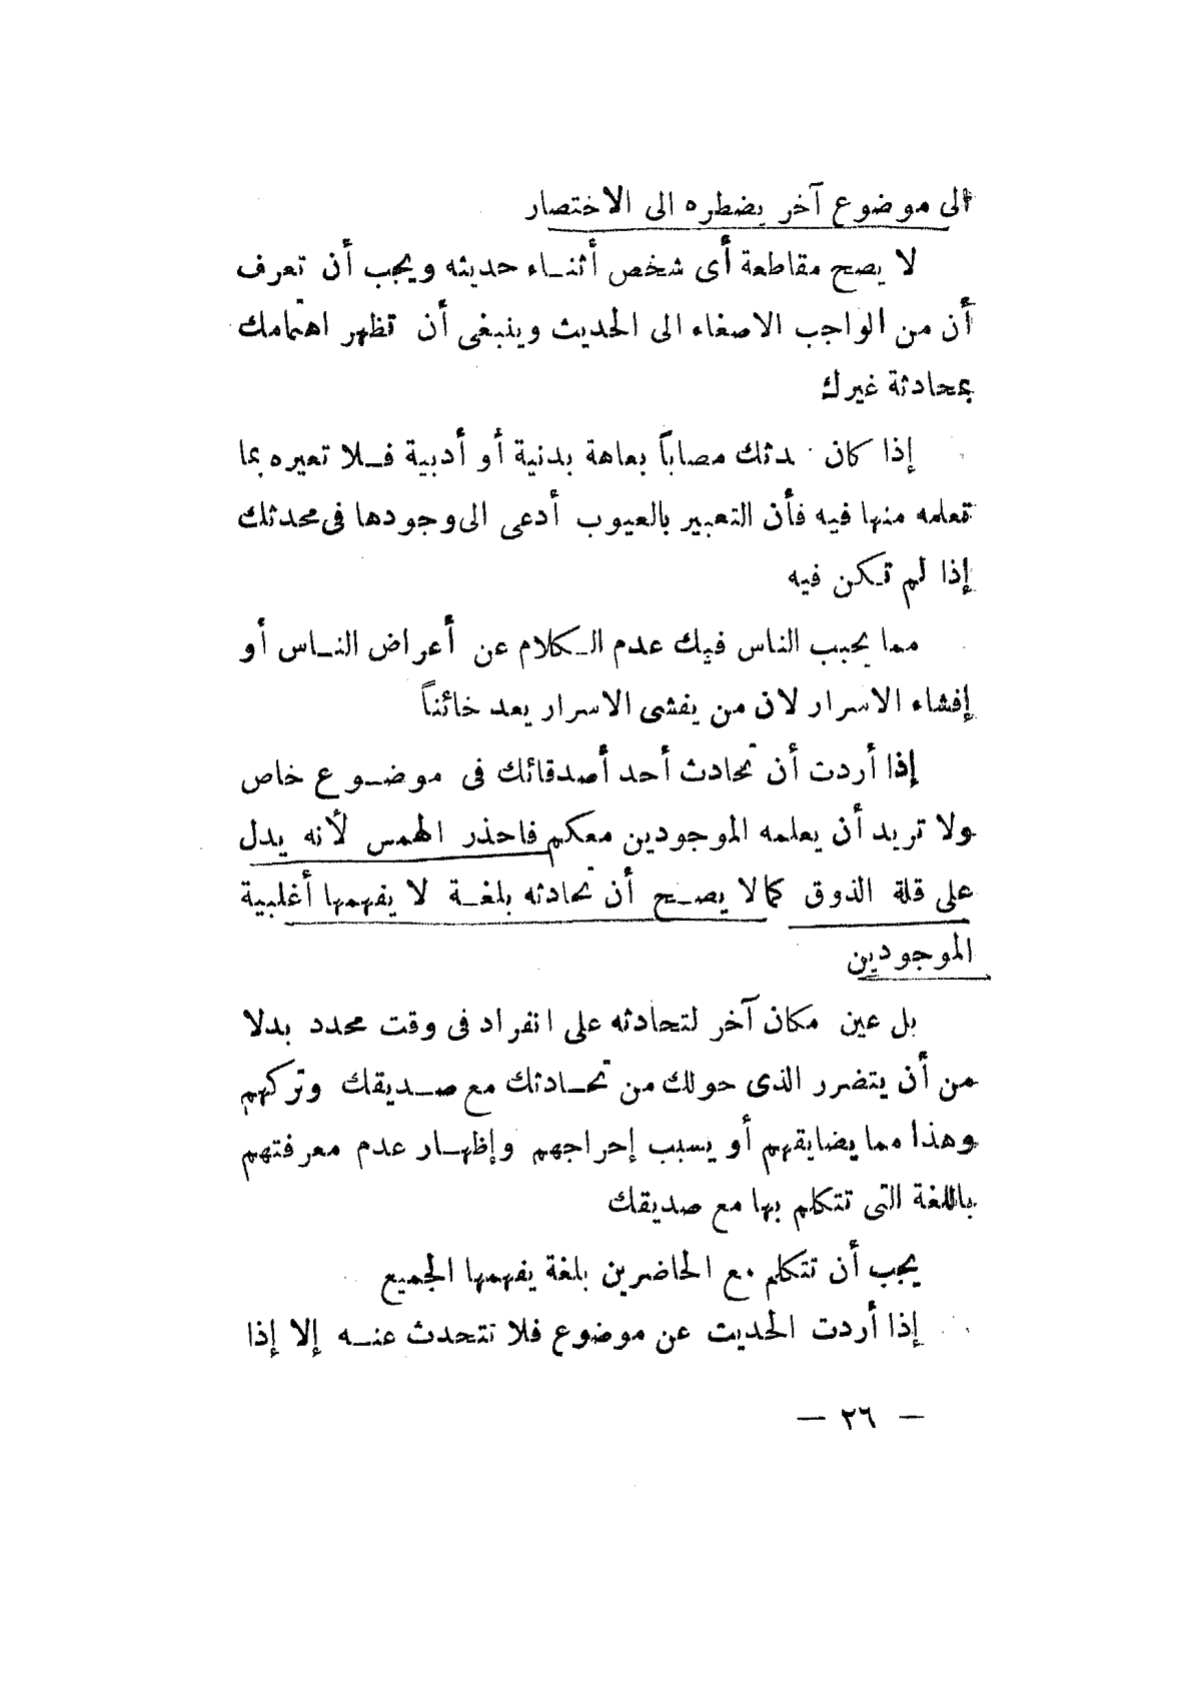 الى موضوع آخر يضطره الى الاختصار
لا يصح مقاطعة أى شخص أثنـاء حديثه ويجب أن تعرف
أن من الواجب الاصغاء الى الحديث وينبغى أن تظهر اهتمامك
بمحادثة غيرك
إذا كان دثك مصاباً بعاهة بدنية أو أدبية فـلا تعيره بما
تعلمه منها فيه فأن التعبير بالعيوب أدعى الى وجودها فى محدثك
إذا لم تـكن فيه
مما يحبب الناس فيك عدم الـكلام عن أعراض النـاس أو
إفشاء الاسرار لان من يفشى الاسرار يعد خائناً
إذا أردت أن تحادث أحد أصدقائك فى موضـوع خاص
ولا تريد أن يعلمه الموجودين معكم فاحذر الهمس لأنه يدل
على قلة الذوق كما لا يصـح أن تحادثه بلغـة لا يفهمها أغلبية
الموجودين
بل عين مكان آخر لتحادثه على انفراد فى وقت محدد بدلا
من أن يتضرر الذى حولك من تحـادثك مع صـديقك وتركهم
وهذا مما يضايقهم أو يسبب إحراجهم وإظهـار عدم معرفتهم
باللغة التى تتكلم بها مع صديقك
يجب أن تتكلم مع الحاضرين بلغة يفهمها الجميع
إذا أردت الحديث عن موضوع فلا تتحدث عنـه إلا إذا
— ٢٦ —